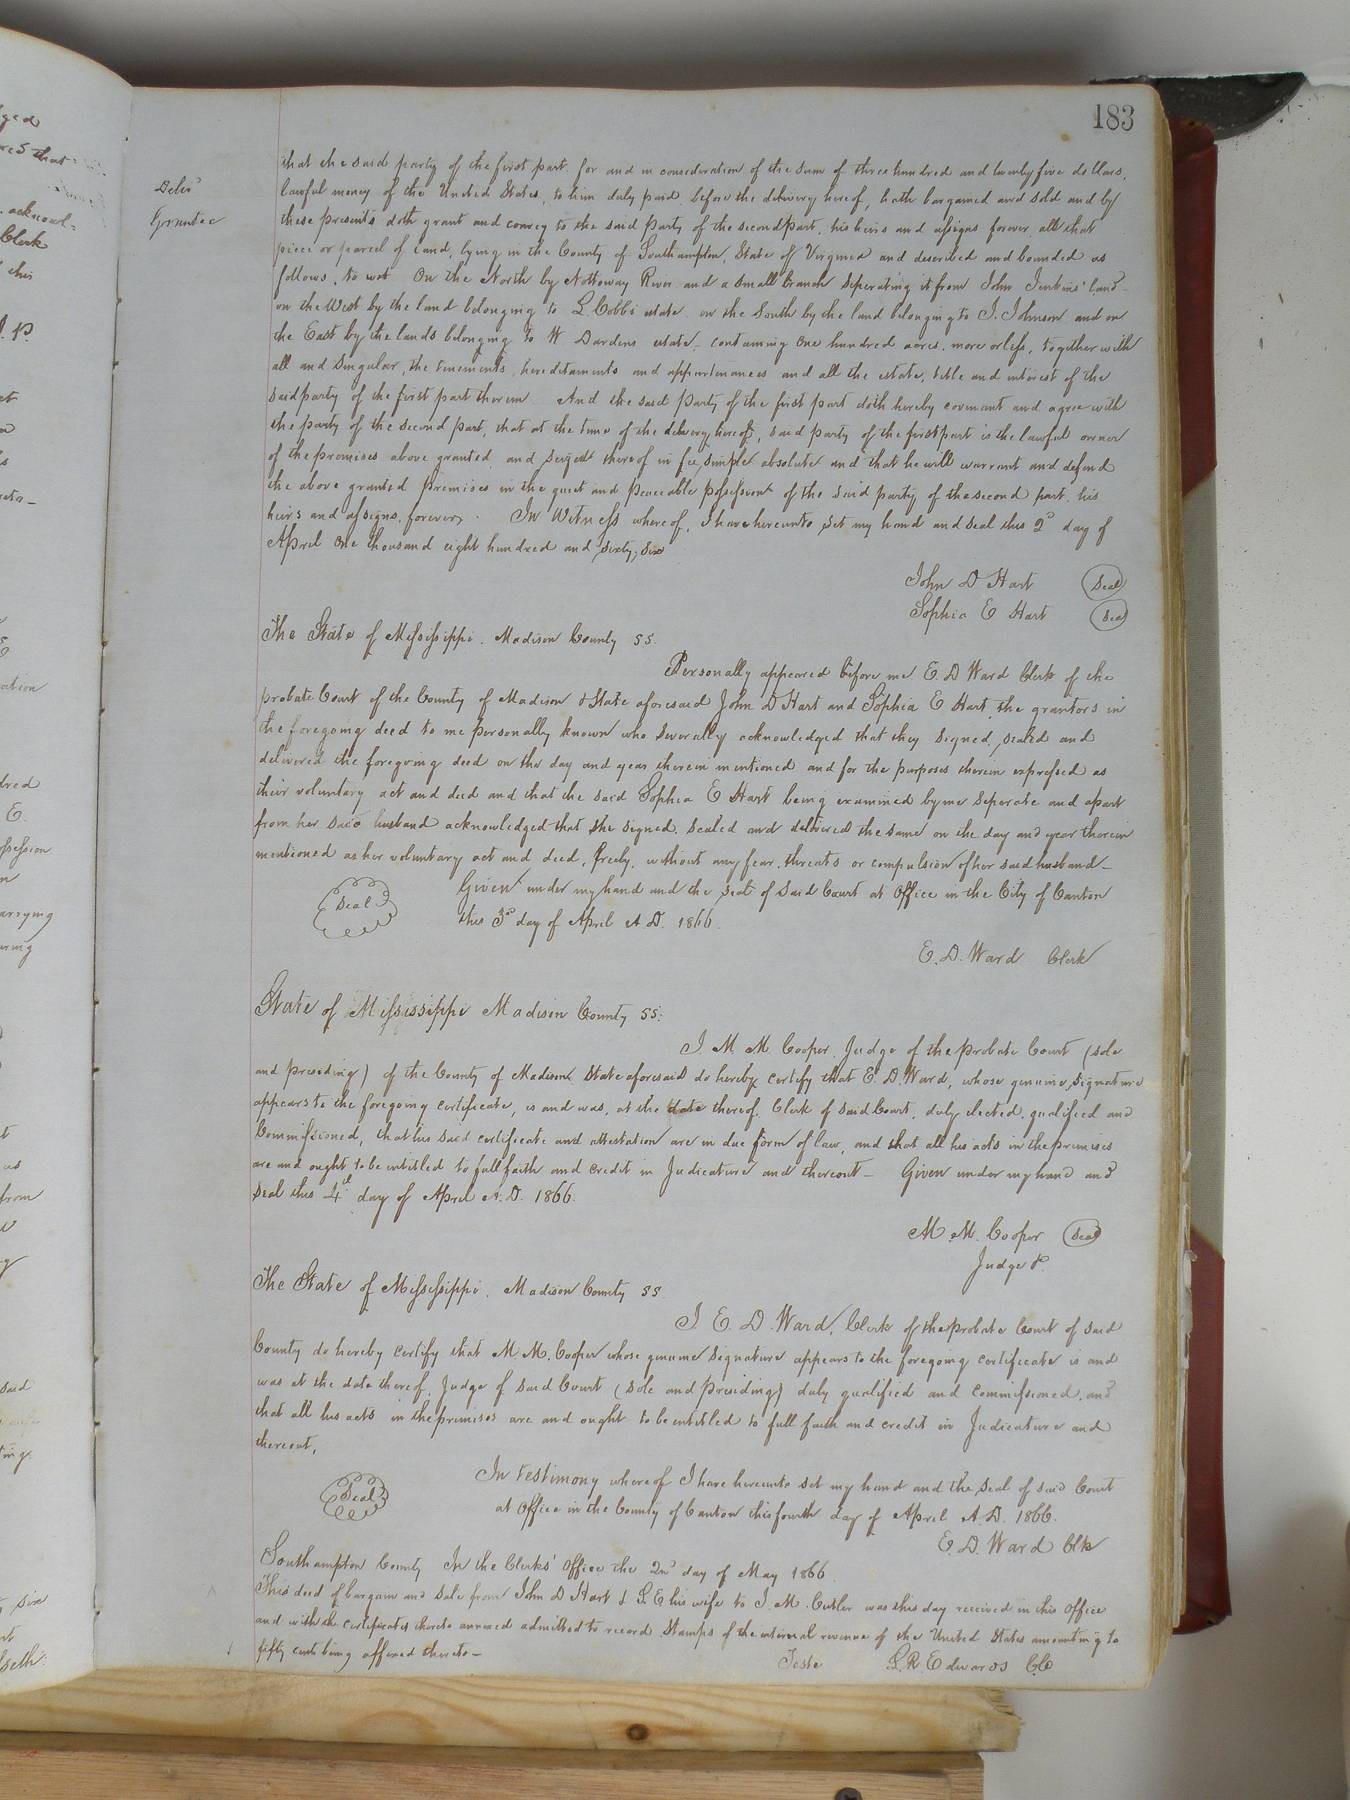 183
Deliv'd
Grantee
that the said party of the first part. for and in consideration of the sum of three hundred and twenty five dollars,
lawful money of the United States, to him duly paid, before the delivery hereof, hath bargained and sold and by
these presents doth grant and convey to the said party of the second part, his heirs and assigns forever, all that
piece or parcel of land, lying in the County of Southampton, State of Virginia and described and bounded as
follows, to wit On the North by Nottoway River and a small branch seperating it from John Jenkins' land
on the West by the land belonging to L. Cobb's estate on the South by the land belonging to J. Johnson and on
the East by the lands belonging to W Dardens estate, containing one hundred acres, more or less, together with
all and singular, the tenements, hereditaments and appurtenances and all the estate, title and interest of the
said party of the first part therein And the said party of the first part doth hereby covenant and agree with
the party of the second part, that at the time of the delivery hereof, said party of the first part is the lawful owner
of the premises above granted, and seized thereof in fee simple absolute and that he will warrant and defend
the above granted premises in the quiet and peaceable possession of the said party of the second part his
heirs and assigns forever. In Witness whereof, I have hereunto set my hand and seal this 2d day of
April one thousand eight hundred and sixty, six
John D Hart Seal
Sophia E Hart Seal
The State of Mississippi. Madison County SS.
Personally appeared before me E. D Ward Clerk of the
probate Court of the County of Madison & State aforesaid John D Hart and Sophia E Hart, the grantors in
the foregoing deed to me personally known who severally acknowledged that they signed, sealed and
delivered the foregoing deed on the day and year therein mentioned and for the purposes therein expressed as
their voluntary act and deed and that the said Sophia E Hart being examined by me seperate and apart
from her said husband acknowledged that she signed. sealed and delivered the same on the day and year therein
mentioned as her voluntary act and deed, freely, without any fear, threats or compulsion of her said husband
Seal Given under my hand and the seal of said Court at Office in the City of Canton
this 3d day of April A.D. 1866.
E. D. Ward Clerk
State of Mississippi Madison County SS.
I. M. M. Cooper. Judge of the probate Court (sole
and presiding) of the County of Madison State aforesaid do hereby certify that E. D. Ward, whose genuine signature
appears to the foregoing certificate, is and was, at the date thereof, Clerk of said Court, duly elected, qualified and
Commissioned, that his said certificate and attestation are in due form of law, and that all his acts in the premises
are and ought to be entitled to full faith and credit in Judicature and thereout Given under my hand and
seal this 4th day of April A.D. 1866.
M. M. Cooper Seal
Judge P.
The State of Mississippi. Madison County SS
I. E. D. Ward, Clerk of the probate Court of said
County do hereby certify that M M. Cooper whose genuine signature appears to the foregoing certificate is and
was at the date thereof, Judge of said Court (sole and presiding) duly qualified and commissioned, and
that all his acts in the premises are and ought to be entitled to full faith and credit in Judicature and
thereout,
Seal In testimony whereof I have hereunto set my hand and the seal of said Court
at Office in the County of Canton this fourth day of April A.D. 1866.
E. D. Ward Clk
Southampton County In the Clerks' Office the 2nd day of May 1866
This deed of bargain and sale from John D Hart & S. E his wife to J. M. Cutler was this day received in this Office
and with the certificates thereto annexed admitted to record Stamps of the internal revenue of the United States amounting to
fifty cents being affixed thereto
Teste L. R Edwards CC